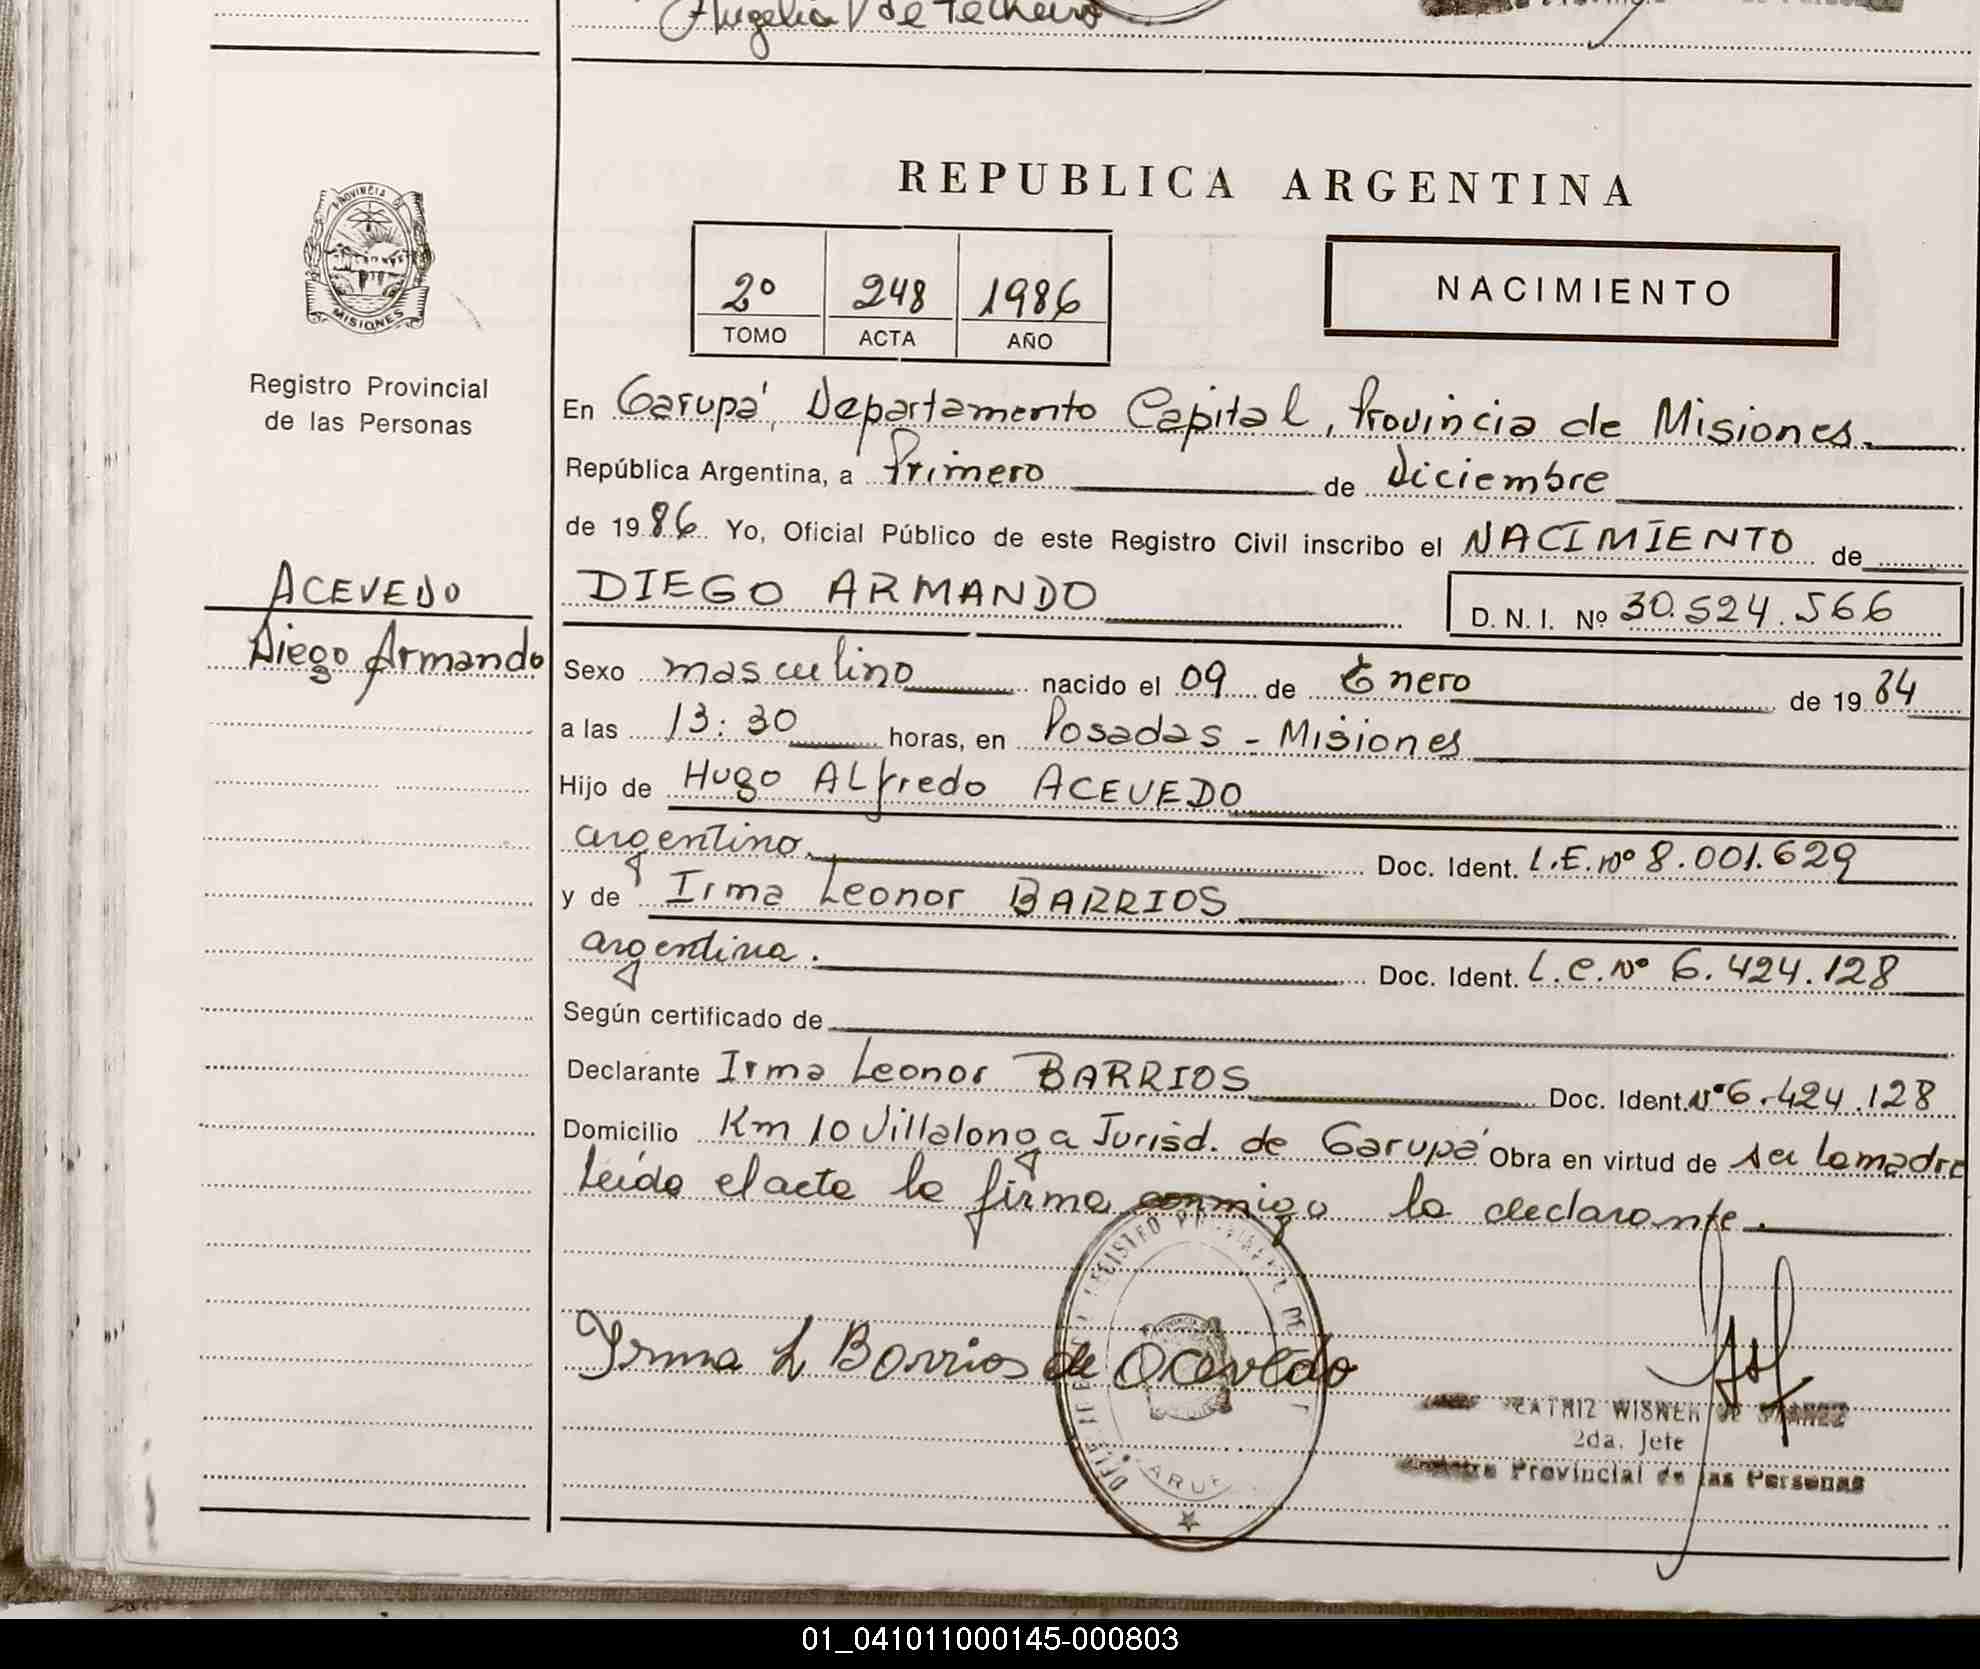 Angelia V de Techeiro
REPUBLICA ARGENTINA
PROVINCIA DE
MISIONES
2º 248 1986
TOMO ACTA AÑO
NACIMIENTO
Registro Provincial
de las Personas
En Garupá, Departamento Capital, Provincia de Misiones.
República Argentina, a Primero de Diciembre
de 1986. Yo, Oficial Público de este Registro Civil inscribo el NACIMIENTO de
ACEVEDO
Diego Armando
DIEGO ARMANDO D. N. I. Nº 30.524.566
Sexo masculino nacido el 09 de Enero de 1984
a las 13:30 horas, en Posadas - Misiones
Hijo de Hugo ALfredo ACEVEDO
argentino. Doc. Ident. L.E. Nº 8.001.629
y de Irma Leonor BARRIOS
argentina. Doc. Ident. L.C. Nº 6.424.128
Según certificado de
Declarante Irma Leonor BARRIOS Doc. Ident. Nº 6.424.128
Domicilio Km 10 Villalonga Jurisd. de Garupá Obra en virtud de ser la madre
Leída el acta la firma conmigo la declarante.
Irma L Barrios de Acevedo
WISNER DE
2da. Jefe
Provincial de las Personas
01_041011000145-000803